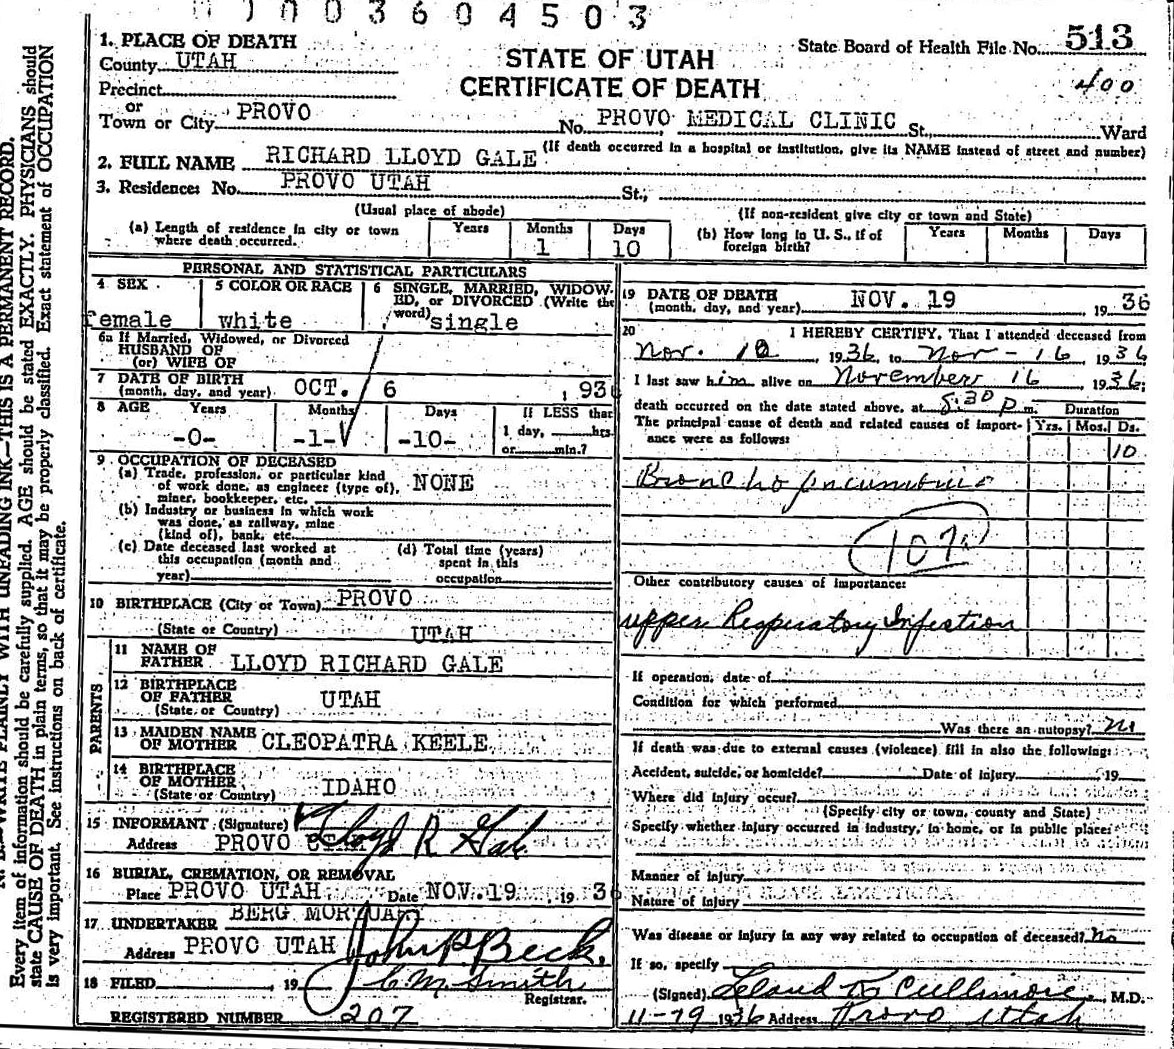 0003604503
1. PLACE OF DEATH
County UTAH
Precinct
or
Town or City PROVO
STATE OF UTAH
CERTIFICATE OF DEATH
State Board of Health File No. 513
400
No. PROVO MEDICAL CLINIC St. Ward
(If death occurred in a hospital or institution, give its NAME instead of street and number)
2. FULL NAME RICHARD LLOYD GALE
3. Residence: No. PROVO UTAH St.,
(Usual place of abode)
(If non-resident give city or town and State)
(a) Length of residence in city or town where death occurred. Years Months 1 Days 10
(b) How long in U. S., if of foreign birth? Years Months Days
PERSONAL AND STATISTICAL PARTICULARS
4 SEX female
5 COLOR OR RACE white
6 SINGLE, MARRIED, WIDOWED, or DIVORCED (Write the word) single
6a If Married, Widowed, or Divorced
HUSBAND OF
(or) WIFE OF
7 DATE OF BIRTH
(month, day, and year) OCT. 6, 936
8 AGE Years -0- Months -1- Days -10- If LESS than 1 day, hrs. or min.?
9 OCCUPATION OF DECEASED
(a) Trade, profession, or particular kind
of work done, as engineer (type of),
miner, bookkeeper, etc. NONE
(b) Industry or business in which work
was done, as railway, mine
(kind of), bank, etc.
(c) Date deceased last worked at
this occupation (month and
year)
(d) Total time (years)
spent in this
occupation
10 BIRTHPLACE (City or Town) PROVO
(State or Country) UTAH
PARENTS
11 NAME OF
FATHER LLOYD RICHARD GALE
12 BIRTHPLACE
OF FATHER UTAH
(State or Country)
13 MAIDEN NAME
OF MOTHER CLEOPATRA KEELE
14 BIRTHPLACE
OF MOTHER
(State or Country) IDAHO
15 INFORMANT (Signature) Lloyd R Gale
Address PROVO UTAH
16 BURIAL, CREMATION, OR REMOVAL
Place PROVO UTAH Date NOV. 19 1936
17 UNDERTAKER BERG MORTUARY
Address PROVO UTAH John P Beck.
18 FILED , 19 C M Smith
Registrar.
REGISTERED NUMBER 207
19 DATE OF DEATH
(month, day, and year) NOV. 19 1936
20 I HEREBY CERTIFY, That I attended deceased from
Nov. 10, 1936, to Nov - 16 1936
I last saw him alive on November 16 1936;
death occurred on the date stated above, at 8:30 p m. Duration
The principal cause of death and related causes of importance were as follows: Yrs. Mos. Ds.
10
Broncho pneumonia
107a
Other contributory causes of importance:
upper Respiratory Infection
If operation, date of
Condition for which performed
Was there an autopsy? no
If death was due to external causes (violence) fill in also the following:
Accident, suicide, or homicide? Date of injury 19
Where did injury occur?
(Specify city or town, county and State)
Specify whether injury occurred in industry, in home, or in public place:
Manner of injury
Nature of injury
Was disease or injury in any way related to occupation of deceased? no
If so, specify
(Signed) Leland K Cullimore, M.D.
11-19 1936 Address Provo, Utah
WRITE PLAINLY WITH UNFADING INK—THIS IS A PERMANENT RECORD.
Every item of information should be carefully supplied. AGE should be stated EXACTLY. PHYSICIANS should
state CAUSE OF DEATH in plain terms, so that it may be properly classified. Exact statement of OCCUPATION
is very important. See instructions on back of certificate.